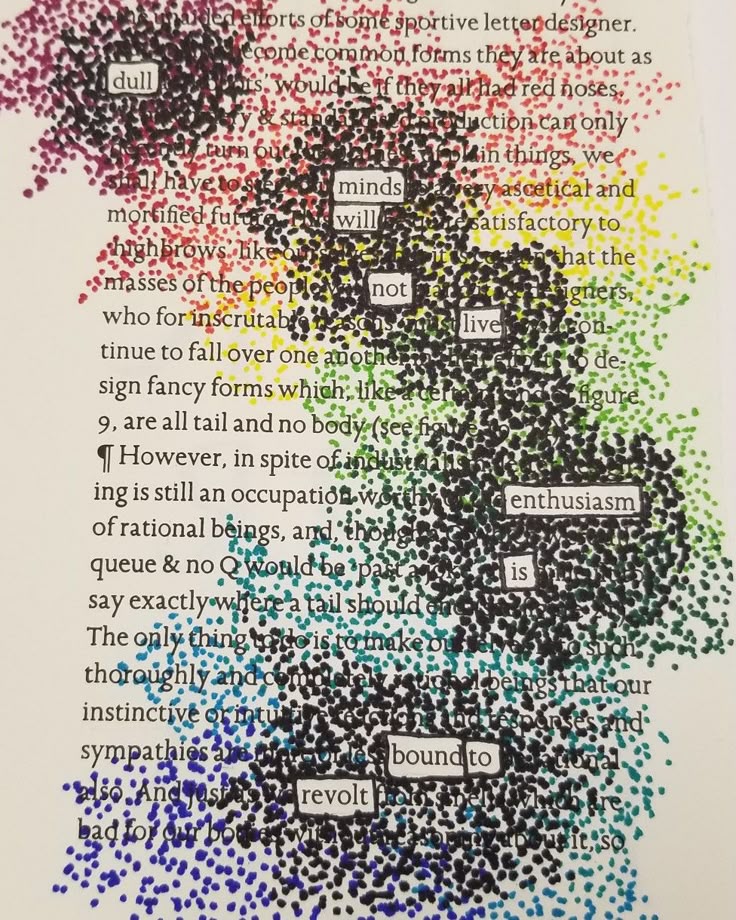 efforts of some sportive letter designer.
become common forms they are about as
dull would be if they all had red noses.
& production can only
turn out plain things, we
shall have to minds very ascetical and
mortified will satisfactory to
'highbrows' like that the
masses of the people not designers,
who for inscrutable reasons must live con-
tinue to fall over one another in their efforts to de-
sign fancy forms which, like a certain figure
9, are all tail and no body (see figure
¶ However, in spite of industrialism
ing is still an occupation worthy enthusiasm
of rational beings, and, though a
queue & no Q would be 'past a is
say exactly where a tail should end
The only thing to do is to make ourselves so such
thoroughly and completely rational beings that our
instinctive or intuitive reactions and responses and
sympathies are more or less bound to rational
also. And just as revolt from smells which are
bad for our bodies without about it, so